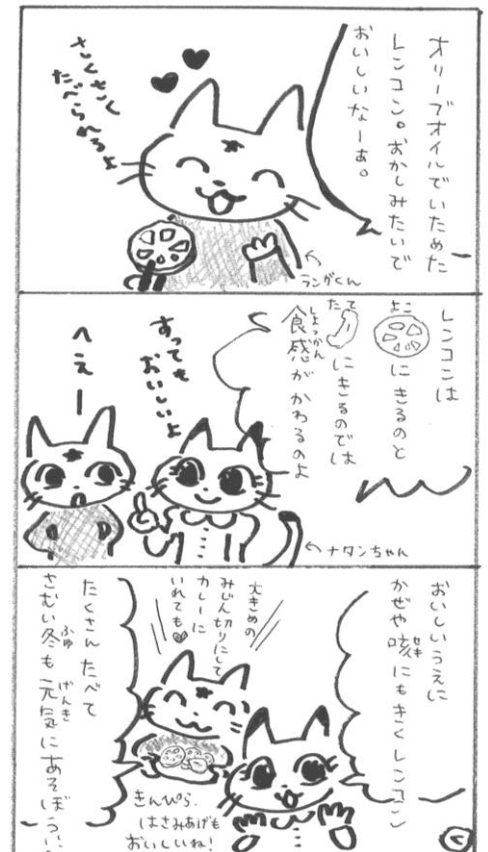 オリーブオイルでいためた
レンコン。おかしみたいで
おいしいなーあ。
さくさく
たべられるよ
ランガくん
レンコンは
よこ
にきるのと
たて
にきるのでは
食感がかわるのよ
しょっかん
すっても
おいしいよ
へえー
ナタンちゃん
おいしいうえに
かぜや咳にもきくレンコン
せき
大きめの
みじん切りにして
カレーに
いれても
たくさんたべて
さむい冬も元気にあそぼう!!
ふゆ
げんき
きんぴら、
はさみあげも
おいしいね!